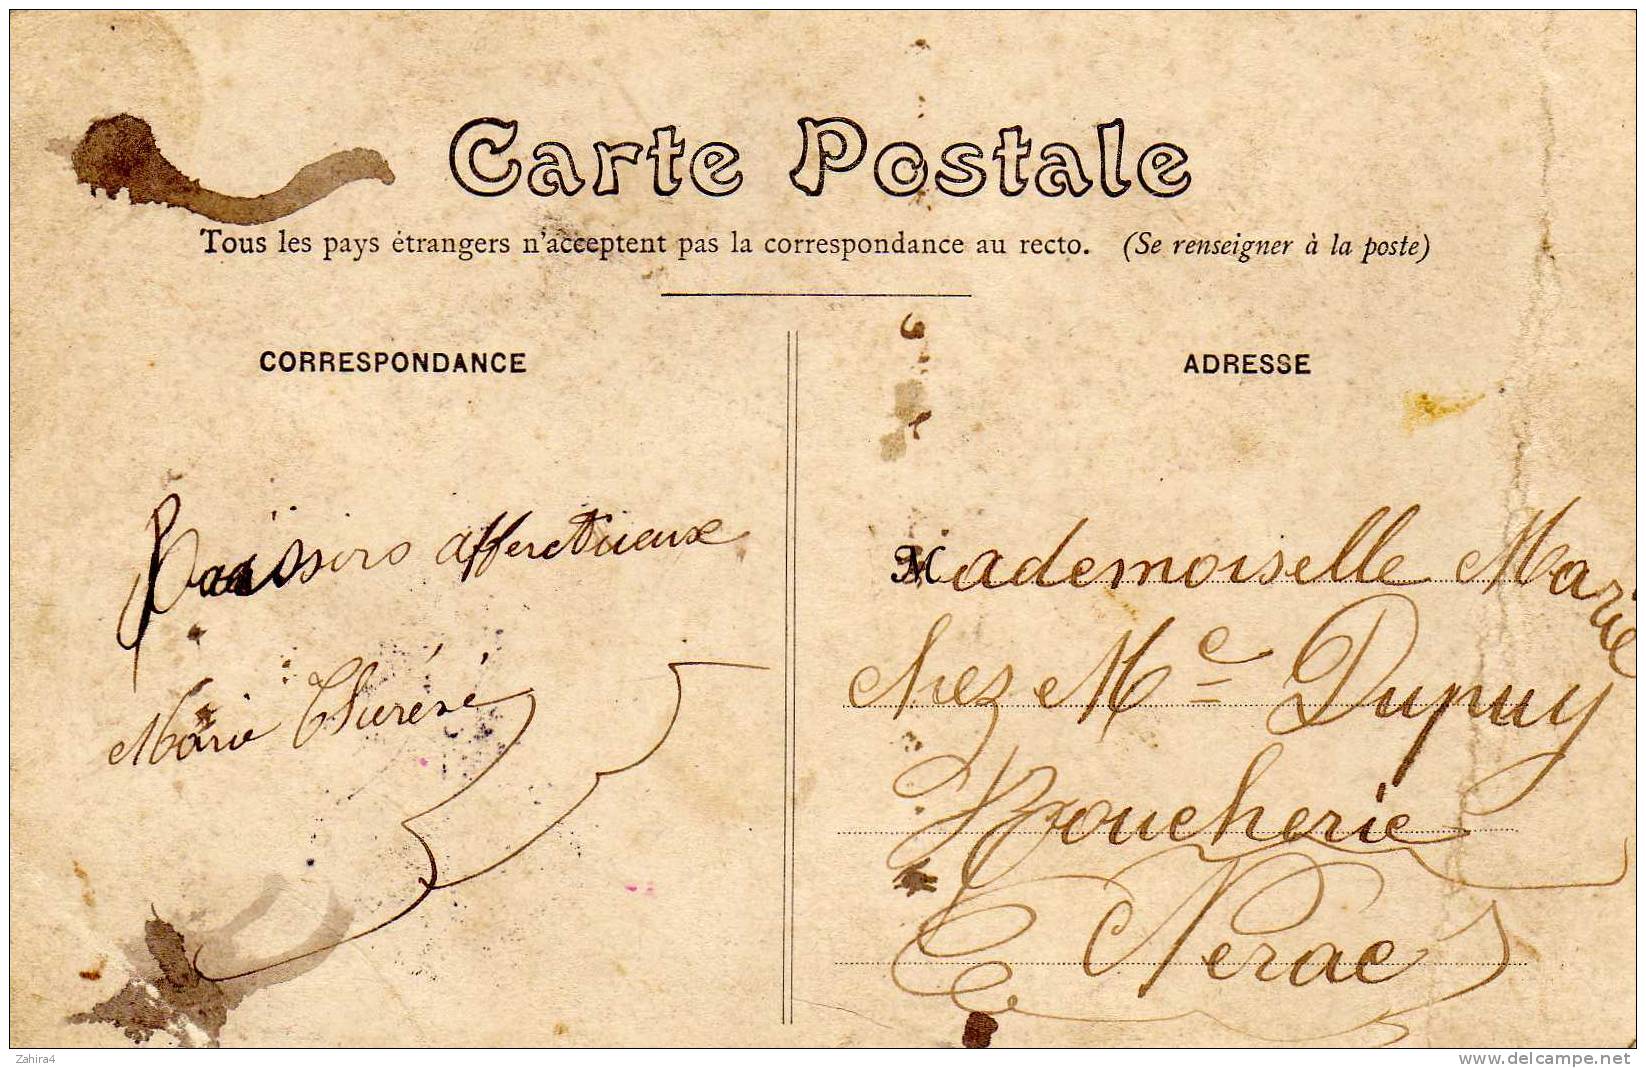 Carte Postale
Tous les pays étrangers n'acceptent pas la correspondance au recto. (Se renseigner à la poste)
CORRESPONDANCE
ADRESSE
Baissers affectueux
Marie
Mademoiselle Marie
chez Me Dupuy
Boucherie
Nerac
Zahira4
www.delcampe.net